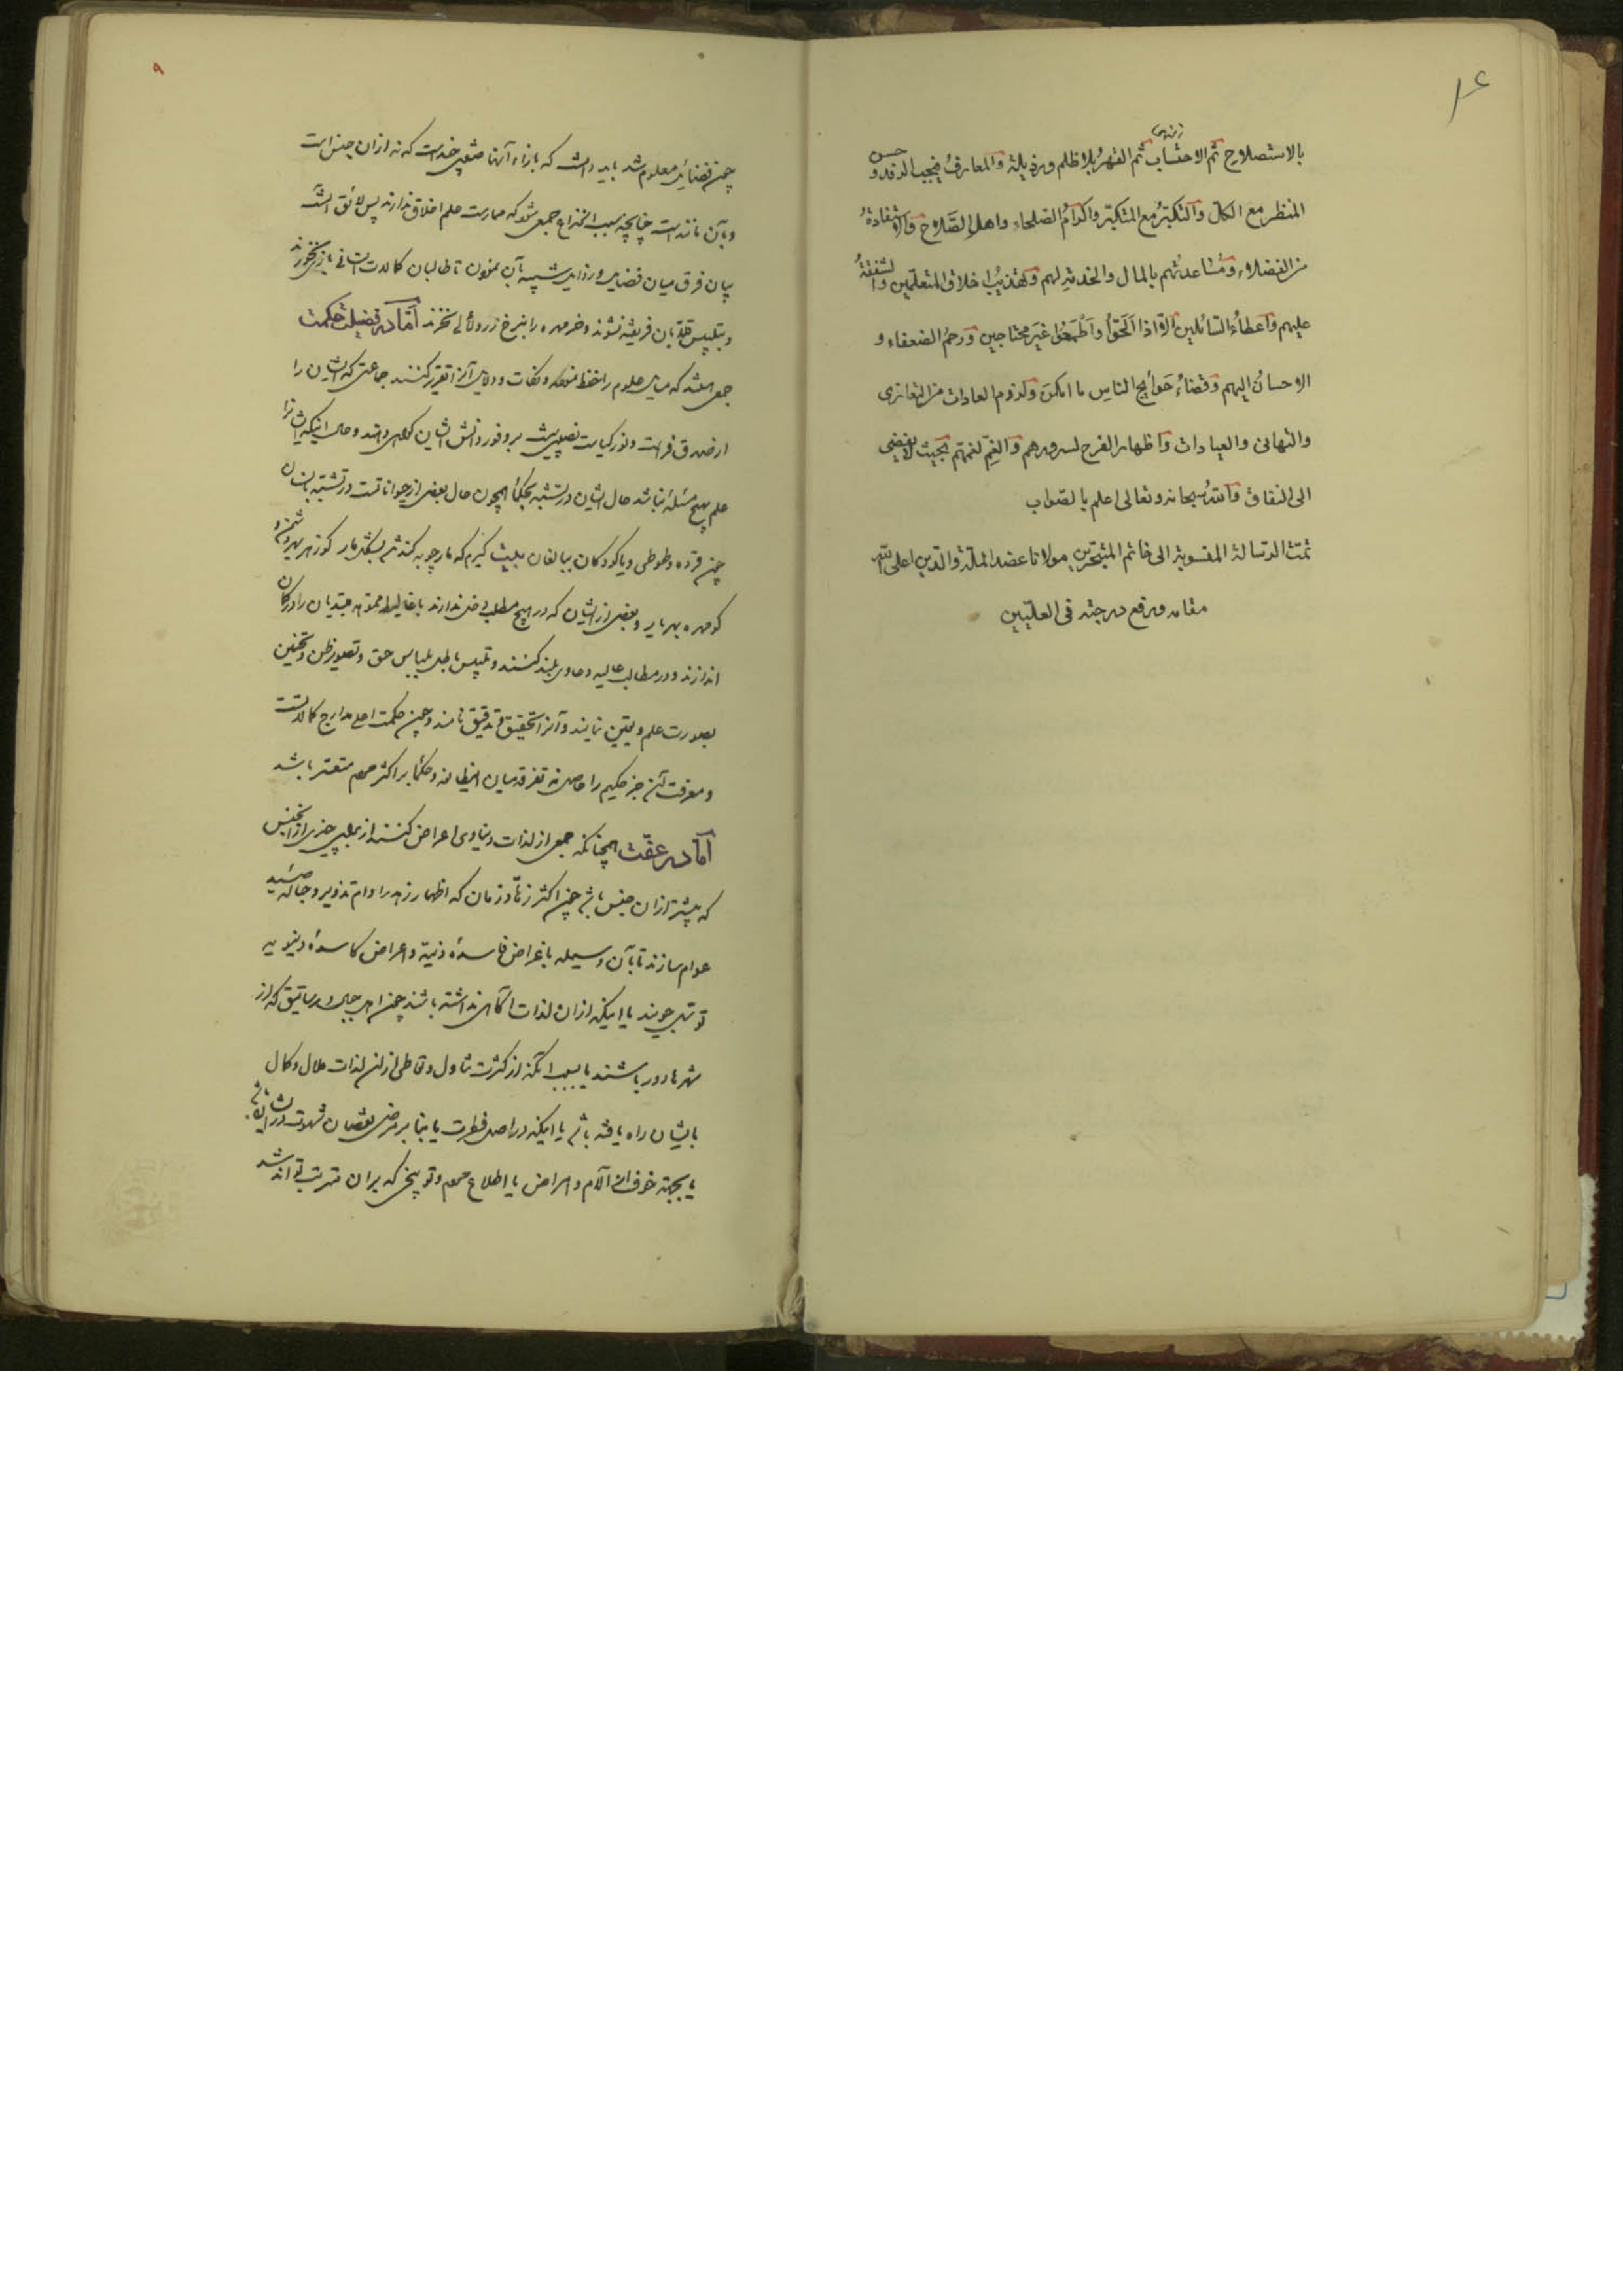 ۱۶
بالاستصلاح ثم الاحتساب ثم القهر بلا ظلم ورذيلة والمعارف فيجب الرفد و حسن
المنظر مع الكل والتكبر مع المتكبر واكرام الصلحاء واهل الصلاح والاستفادة
من الفضلاء ومساعدتهم بالمال والخدمة لهم وتهذيب اخلاق المتعلمين والشفقة
عليهم واعطاء السائلين الا اذا الحقوا واطمعوا غير محتاجين ورحم الضعفاء و
الاحسان اليهم وقضاء حوايج الناس ما امكن ولزوم العادات من التعازى
والتهانى والعيادات واظهار الفرح لسرورهم والغم لغمهم بحيث لا يفضى
الى النفاق والله سبحانه وتعالى اعلم بالصواب
تمت الرسالة المنسوبة الى خاتم المتبحرين مولانا عضد الملة والدين اعلى الله
مقامه ورفع درجته فى العليين
۹
چون فضائل معلوم شد باید دانست که بازاء آنها صفتی چند است که نه از ان جنس است
و بآن مانند است چنانچه سبب انخداع جمعی شود که ممارست علم اخلاق ندارند پس لائق است
بیان فرق میان فضایل و رذایل شبیه بآن نمودن تا طالبان کمالات انسانی بازی نخورند
و بتلبیس قلابان فریفته نشوند و خرمهره را بنرخ زر و لآلی نخرند اما در فضیلت حکمت
جمعی باشند که مسائل علوم را حفظ نموده و نکات و دلایل آنرا تقریر کنند جماعتی که ایشان را
از صدق فراست و نور کیاست نصیبی نیست بر وفور دانش ایشان گواهی دهند و حال اینکه ایشانرا
علم بهیچ مسئله نباشد حال ایشان در تشبه بحکما همچون حال بعضی از حیوانات است در تشبه بانسان
چون قرده و طوطی و یا کودکان ببالغان بیت گیرم که مارچوبه کند تن بشکل مار کو زهر بهر دشمن و
کو مهره بهر یار و بعضی از ایشان که در هیچ مطلب دخلی ندارند باغالیط مموهه مبتدیان را در گمان
اندازند و در مطالب عالیه دعاوی بلند کنند و تلبیس باطل بلباس حق و تصویر ظن و تخمین
بصورت علم و یقین نمایند و آنرا تحقیق و تدقیق نامند و چون حکمت اعلی مدارج کمالات است
و معرفت آن جز حکیم را حاصل نه تفرقه میان این طائفه و حکما بر اکثر مردم متعسر باشد
اما در عفت همچنانکه جمعی از لذات دنیاوی اعراض کنند از برای چیزی از آن جنس
که بیشتر از ان جنس باشد چون اکثر زهاد زمان که اظهار زهد را دام تزویر و حباله صید
عوام سازند تا بآن وسیله باغراض فاسده دنیه و اعراض کاسده دنیویه
توسل جویند یا اینکه از ان لذات آگاهی نداشته باشند چون اهل جبال و رساتیق که از
شهرها دور باشند یا بسبب آنکه از کثرت تناول و تعاطی از این لذات ملال و کلال
بایشان راه یافته باشد یا اینکه در اصل فطرت یا بنا بر مرضی نقصان شهوت در ایشان باشد
یا بجهة خوف از آلام و امراض یا اطلاع مردم و توبیخی که بران مترتب تواند شد